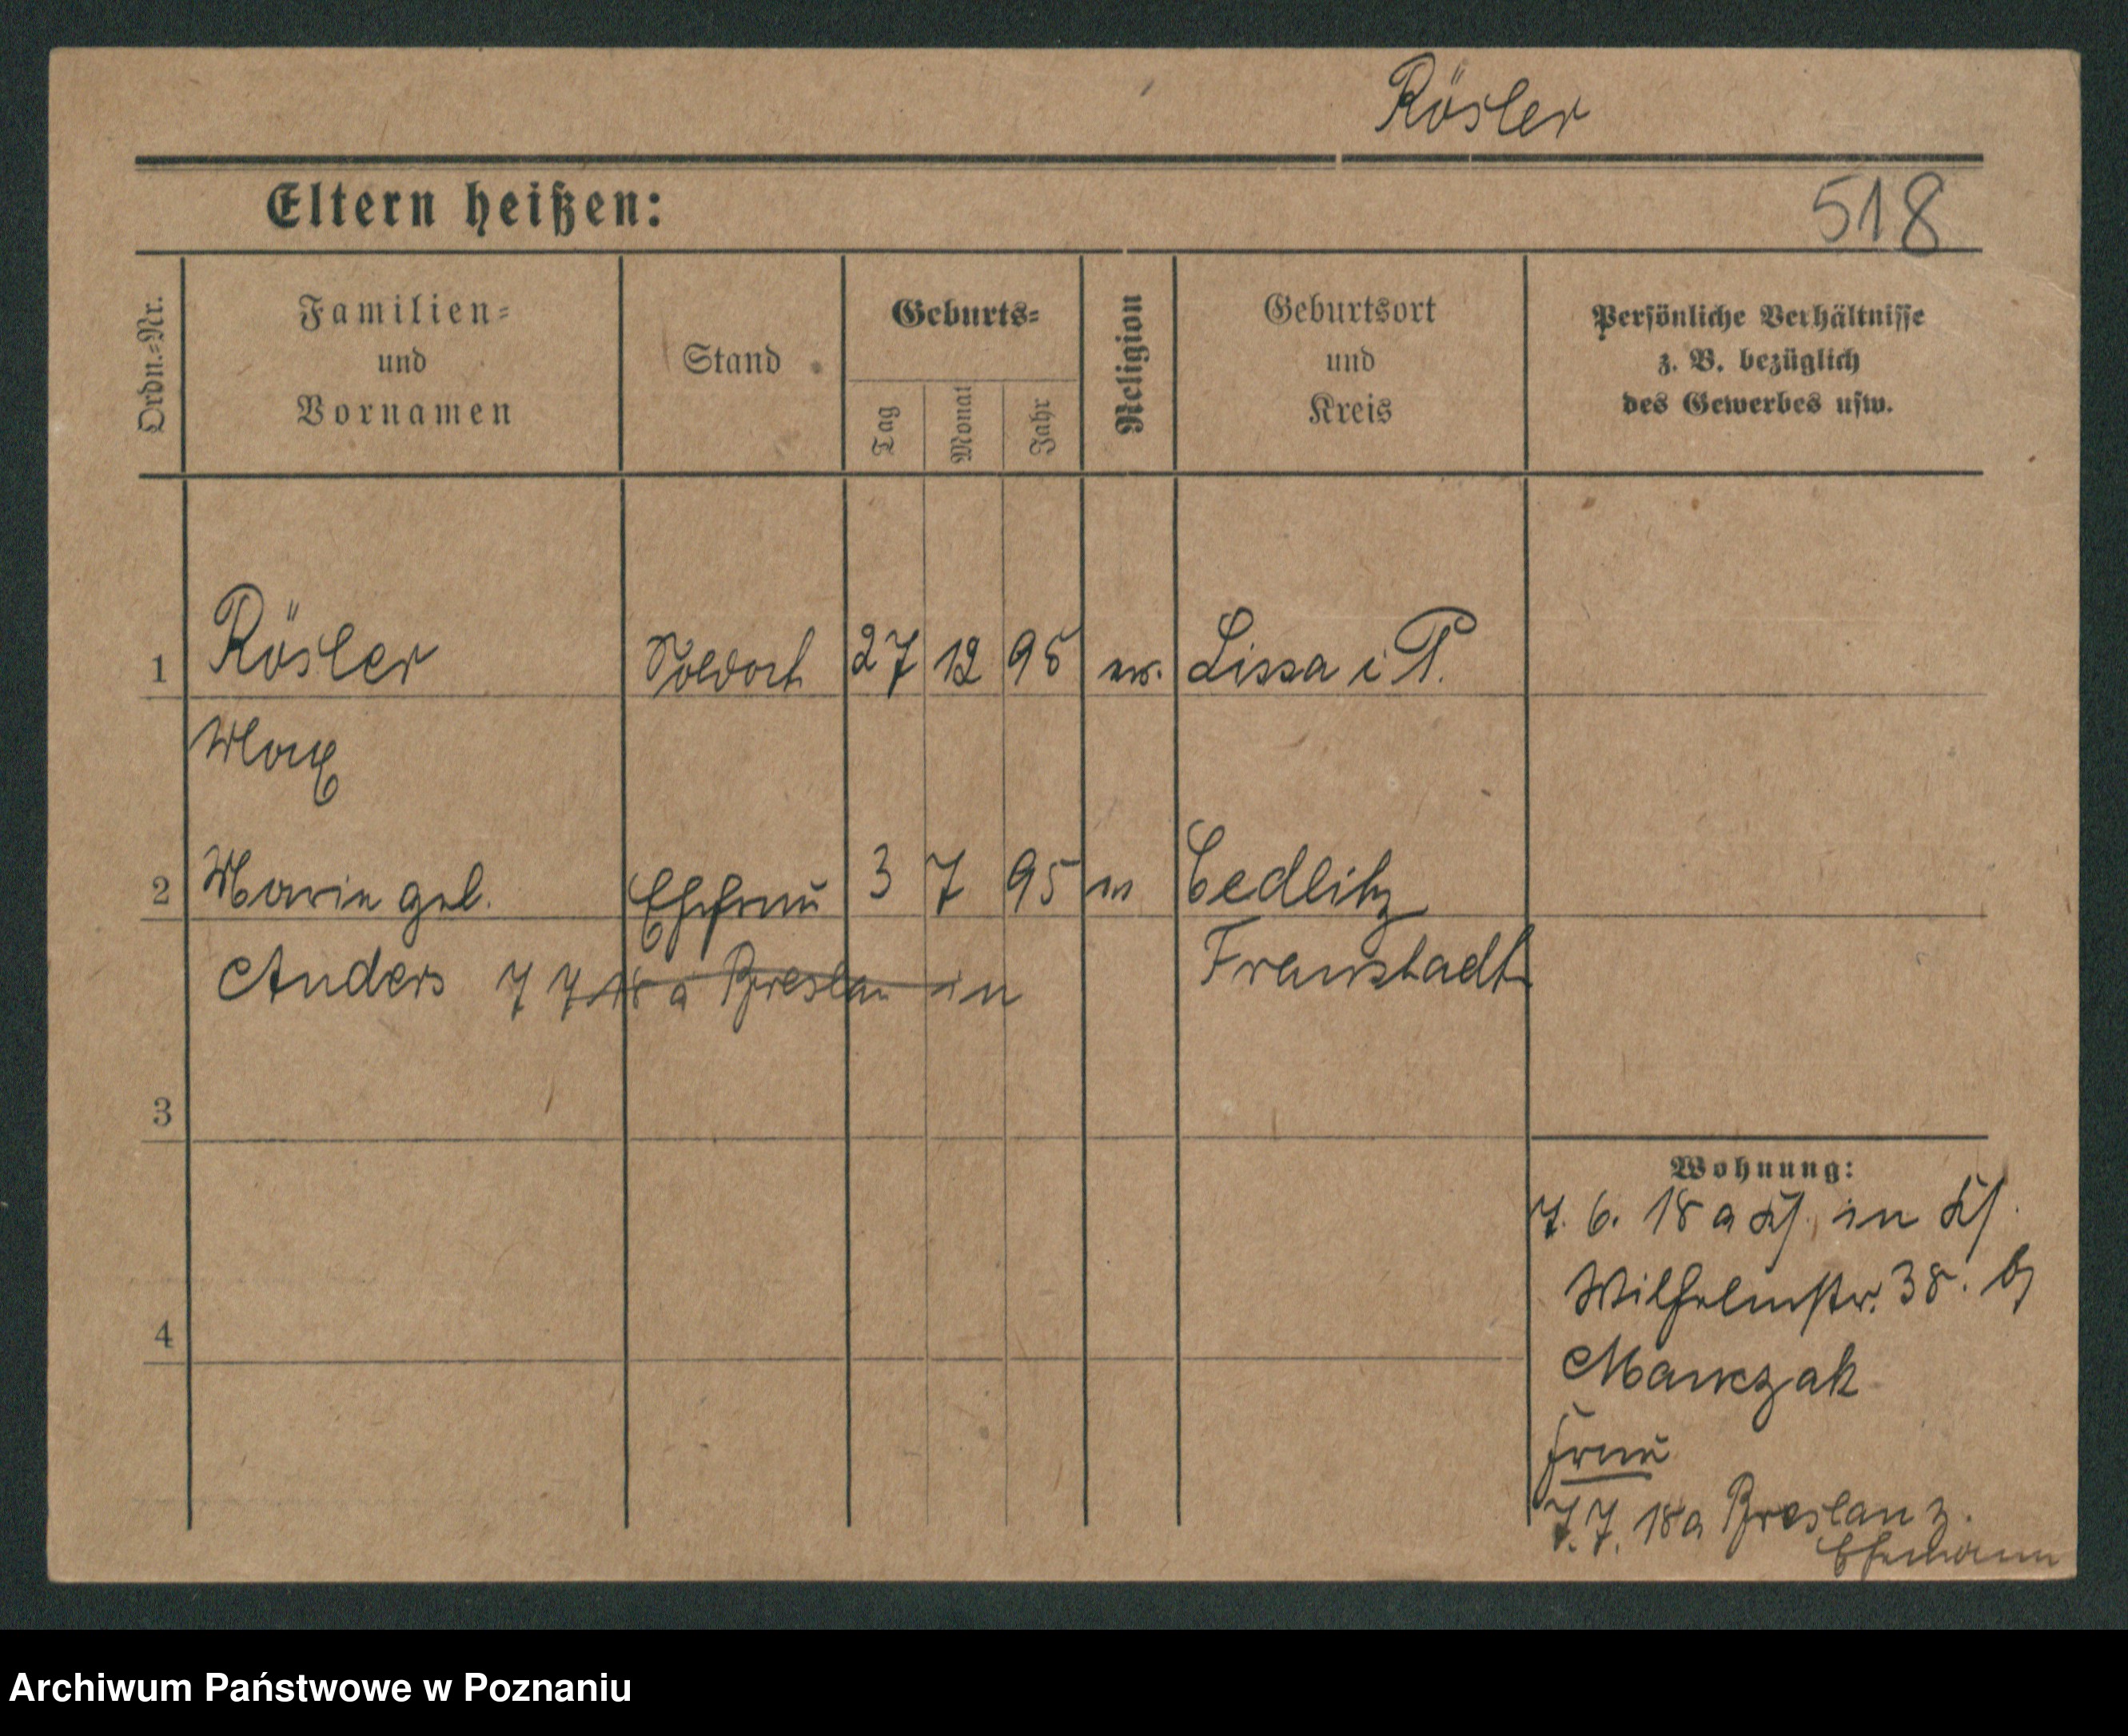 Rösler
Eltern heißen:
518
Ordn.-Nr.
Familien-
und
Vornamen
Stand
Geburts-
Tag
Monat
Jahr
Religion
Geburtsort
und
Kreis
Persönliche Verhältnisse
z. B. bezüglich
des Gewerbes usw.
1 Rösler Soldat 27 12 95 ev. Lissa i P.
Max
2 Marie geb. Ehefrau 3 7 95 Zedlitz
Anders 7 7 18 a Breslau in Fraustadt
3
4
Wohnung:
7. 6. 18 a in
Wilhelmstr. 38. b
Marczak
Frau
7. 7. 18 a Breslau z.
Ehemann
Archiwum Państwowe w Poznaniu